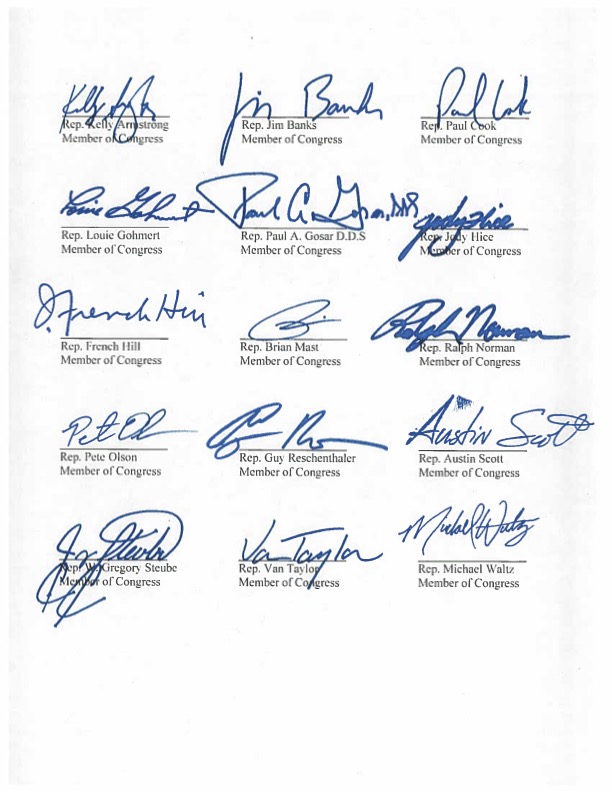 Kelly Armstrong Jim Banks Paul Cook
Rep. Kelly Armstrong Rep. Jim Banks Rep. Paul Cook
Member of Congress Member of Congress Member of Congress
Louie Gohmert Paul A. Gosar, DDS Jody Hice
Rep. Louie Gohmert Rep. Paul A. Gosar D.D.S Rep. Jody Hice
Member of Congress Member of Congress Member of Congress
J. French Hill Ralph Norman
Rep. French Hill Rep. Brian Mast Rep. Ralph Norman
Member of Congress Member of Congress Member of Congress
Pete Olson Austin Scott
Rep. Pete Olson Rep. Guy Reschenthaler Rep. Austin Scott
Member of Congress Member of Congress Member of Congress
Steube Van Taylor Michael Waltz
Rep. W. Gregory Steube Rep. Van Taylor Rep. Michael Waltz
Member of Congress Member of Congress Member of Congress